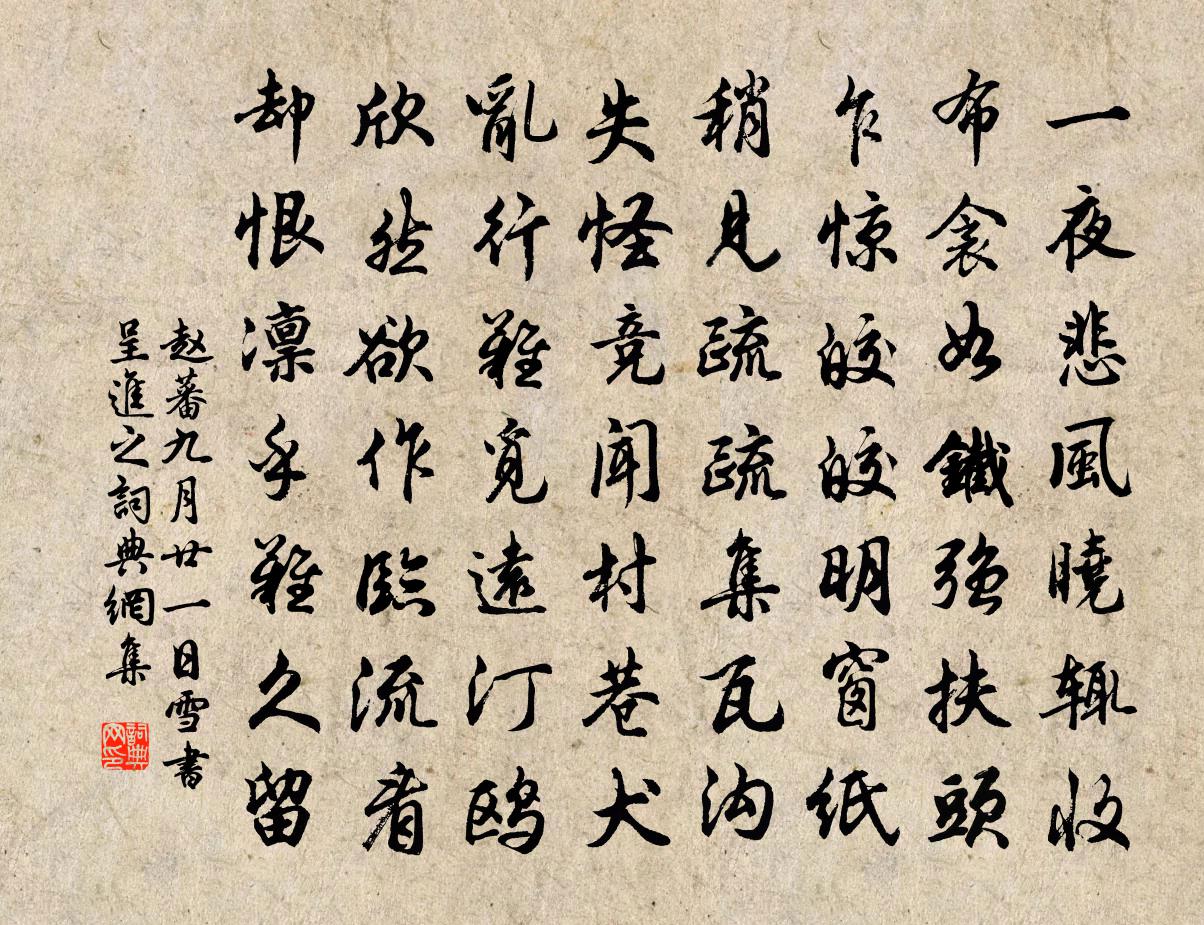 一夜悲風曉辄收
布衾如鐵強扶頭
乍惊皎皎明窗紙
稍見疏疏集瓦沟
失怪竞闻村巷犬
亂行難覓遠汀鸥
欣然欲作臨流看
却恨凛乎難久留
赵蕃九月廿一日雪書
呈進之詞典網集
詞典网印